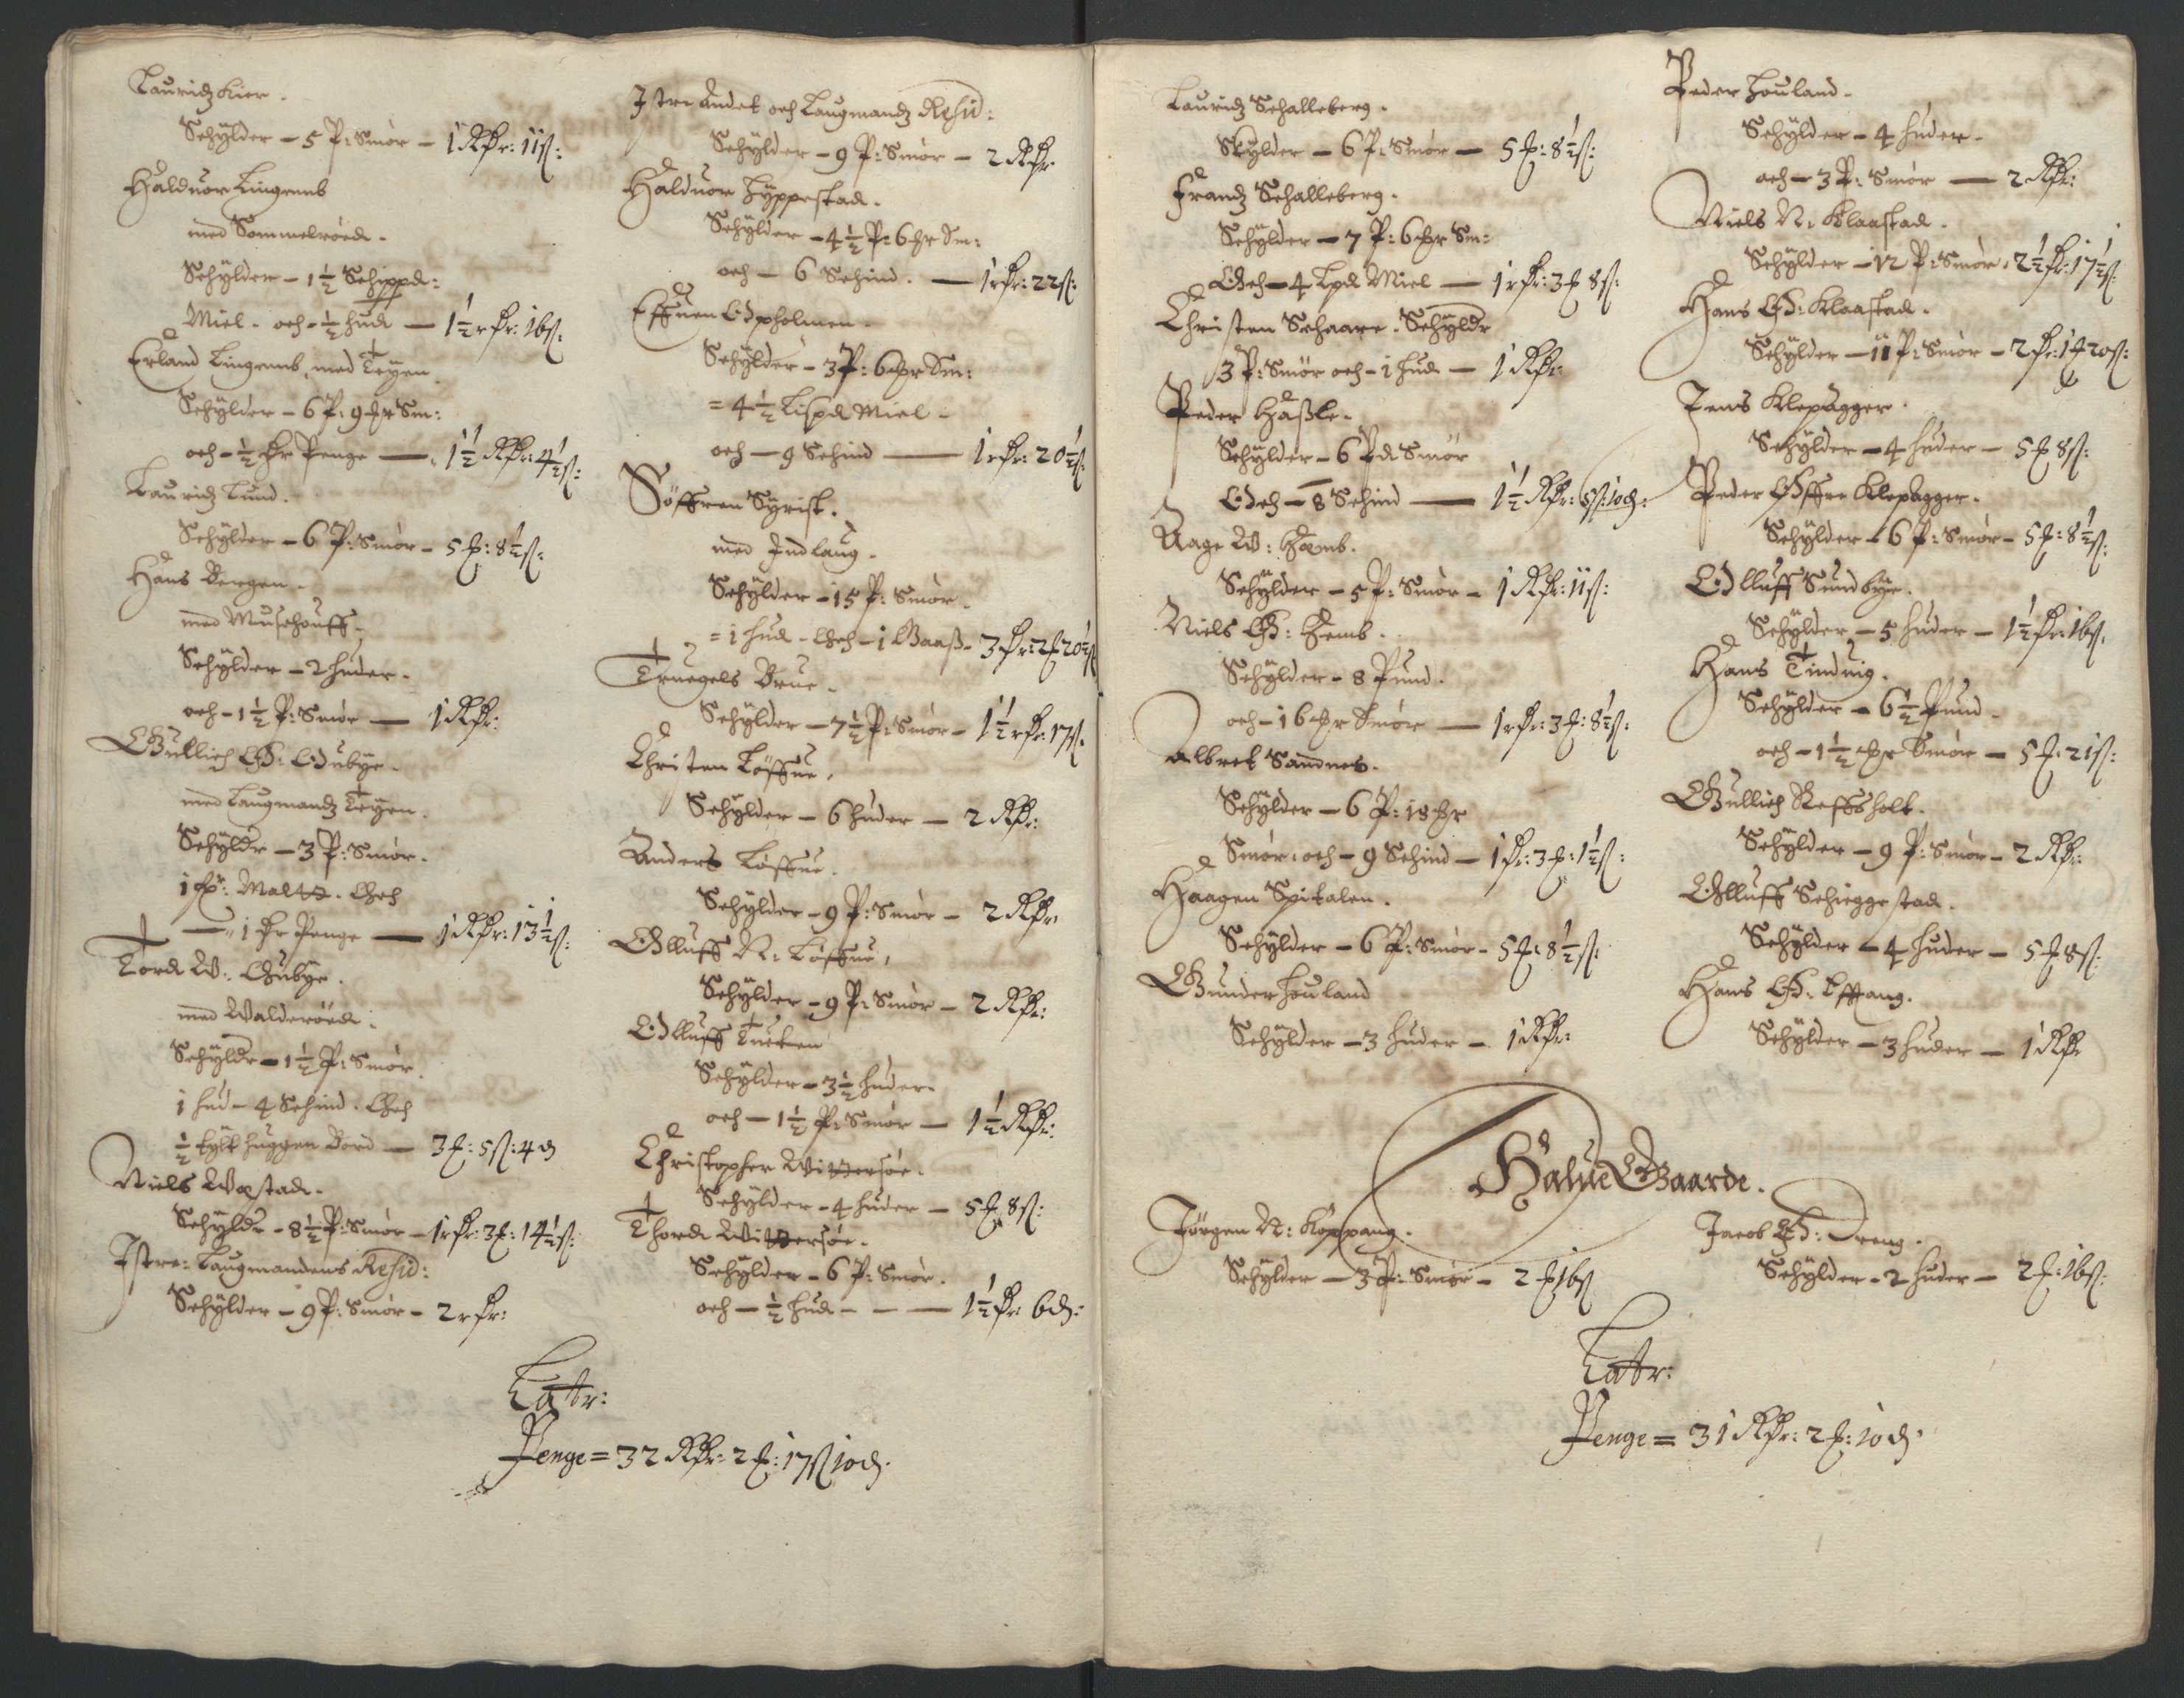 Lauridz Kier.
Schylder – 5 P: Smør – 1 Rdr: 11 ß:
Halduor Lingumb
med Sommelrøed.
Schylder – 1½ Schippd:
Miel. och – ½ hud — 1½ rdr: 16 ß:
Erland Lingumb, med Teÿen
Schylder – 6 P: 9 mr Sm:
och – ½ dr Penge — 1½ Rdr: 4½ ß:
Lauridz Lund.
Schylder – 6 P: Smør – 5 f: 8½ ß:
Hans Bergen.
med Musehouff.
Schylder – 2 huder.
och – 1½ P: Smør — 1 Rdr:
Gullich Ø: Oubye.
med Laugmandz Teÿen.
Schyldr – 3 P: Smør.
1 Malt. Och
– 1 dr Penge — 1 Rdr: 13½ ß:
Tord W: Oubÿe.
med Walderøed.
Schyldr – 1½ P: Smør.
1 hud – 4 Schind. Och
½ tylt huggen Bord — 3 f: 5 ß: 4 d
Niels Wostad.
Schyldr – 8½ P: Smør – 1 rdr: 3 f: 14½ ß:
Istre: Laugmandens Resid:
Schylder – 9 P: Smør – 2 rdr:
Istre Andet och Laugmandz Resid:
Schylder – 9 P: Smør – 2 Rdr
Halduor Hyppestad.
Schylder – 4½ P: 6 mr Sm:
och – 6 Schind. — 1 rdr: 22 ß:
Effuen Opholmen.
Schylder – 3 P: 6 mr Sm:
= 4½ Lispd Miel –
och — 9 Schind — 1 rdr: 20½ ß:
Søffren Syrist.
med Indlaug.
Schylder – 15 P: Smør.
= 1 hud – Och – 1 Gaaß – 3 dr: 2 f 20½ ß
Truegels Brue.
Schylder – 7½ P: Smør – 1½ rdr: 17 ß.
Christen Løffue.
Schylder – 6 huder — 2 Rdr:
Anders Løffue.
Schylder – 9 P: Smør – 2 Rdr:
Olluff N: Løffue,
Schylder – 9 P: Smør – 2 Rdr:
Olluff Tueten
Schylder – 3½ huder.
och — 1½ P: Smør — 1½ Rdr:
Christopher Wittersøe.
Schylder – 4 huder — 5 f 8 ß:
Thord Wittersøe.
Schylder – 6 P: Smør.
och — ½ hud – – — 1½ dr 6 d:
Latr:
Penge = 32 Rdr: 2 f: 17 ß 10 d.
Lauridz Schalleberg.
Skylder – 6 P: Smør — 5 f: 8½ ß:
Frandz Schalleberg.
Schylder – 7 P: 6 mr Sm:
Och – 4 Lpd Miel — 1 rdr: 3 f 8 ß:
Christen Schaare. Schyldr
3 P: Smør och – 1 hud — 1 Rdr:
Peder Haßle.
Schylder – 6 Pd Smør
Och – 8 Schind — 1½ Rdr: 5 ß: 10 d:
Aage W: Hæmb.
Schylder – 5 P: Smør – 1 Rdr: 11 ß:
Niels Ø: Hemb.
Schylder – 8 Pund.
och – 16 mr Smør — 1 rdr: 3 f: 8½ ß:
Albret Sandnes.
Schylder – 6 P: 18 mr
Smør: och – 9 Schind – 1 dr: 3 f: 1½ ß:
Haagen Spitalen.
Schylder – 6 P: Smør – 5 f: 8½ ß:
Gunder Houland
Schylder – 3 huder – 1 Rdr:
Peder Houland.
Schylder – 4 huder.
och – 3 P: Smør — 2 Rdr:
Niels N: Klaastad.
Schylder – 12 P: Smør: 2½ dr: 17½ ß:
Hans Ø: Klaastad.
Schylder – 11 P: Smør – 2 dr: 1 f 20 ß:
Jens Klepagger.
Schylder – 4 huder – 5 f 8 ß:
Peder Øffre Klepagger.
Schylder – 6 P: Smør – 5 f: 8½ ß:
Olluff Sundbye.
Schylder – 5 huder – 1½ dr: 16 ß.
Hans Tinduig.
Schylder – 6½ Pund
och – 1½ mr Smør – 5 f: 21 ß:
Gullich Reffsholt.
Schylder – 9 P: Smør – 2 Rdr:
Olluff Schieggestad.
Schylder – 4 huder – 5 f 8 ß:
Hans Ø: Efftang.
Schylder – 3 huder – 1 Rdr
Halue Gaarde.
Jørgen N: Kaappang.
Schylder – 3 P: Smør – 2 f 16 ß
Jacob Ø: Dreng.
Schylder – 2 huder – 2 f: 16 ß:
Latr:
Penge = 31 Rdr: 2 f: 10 d.